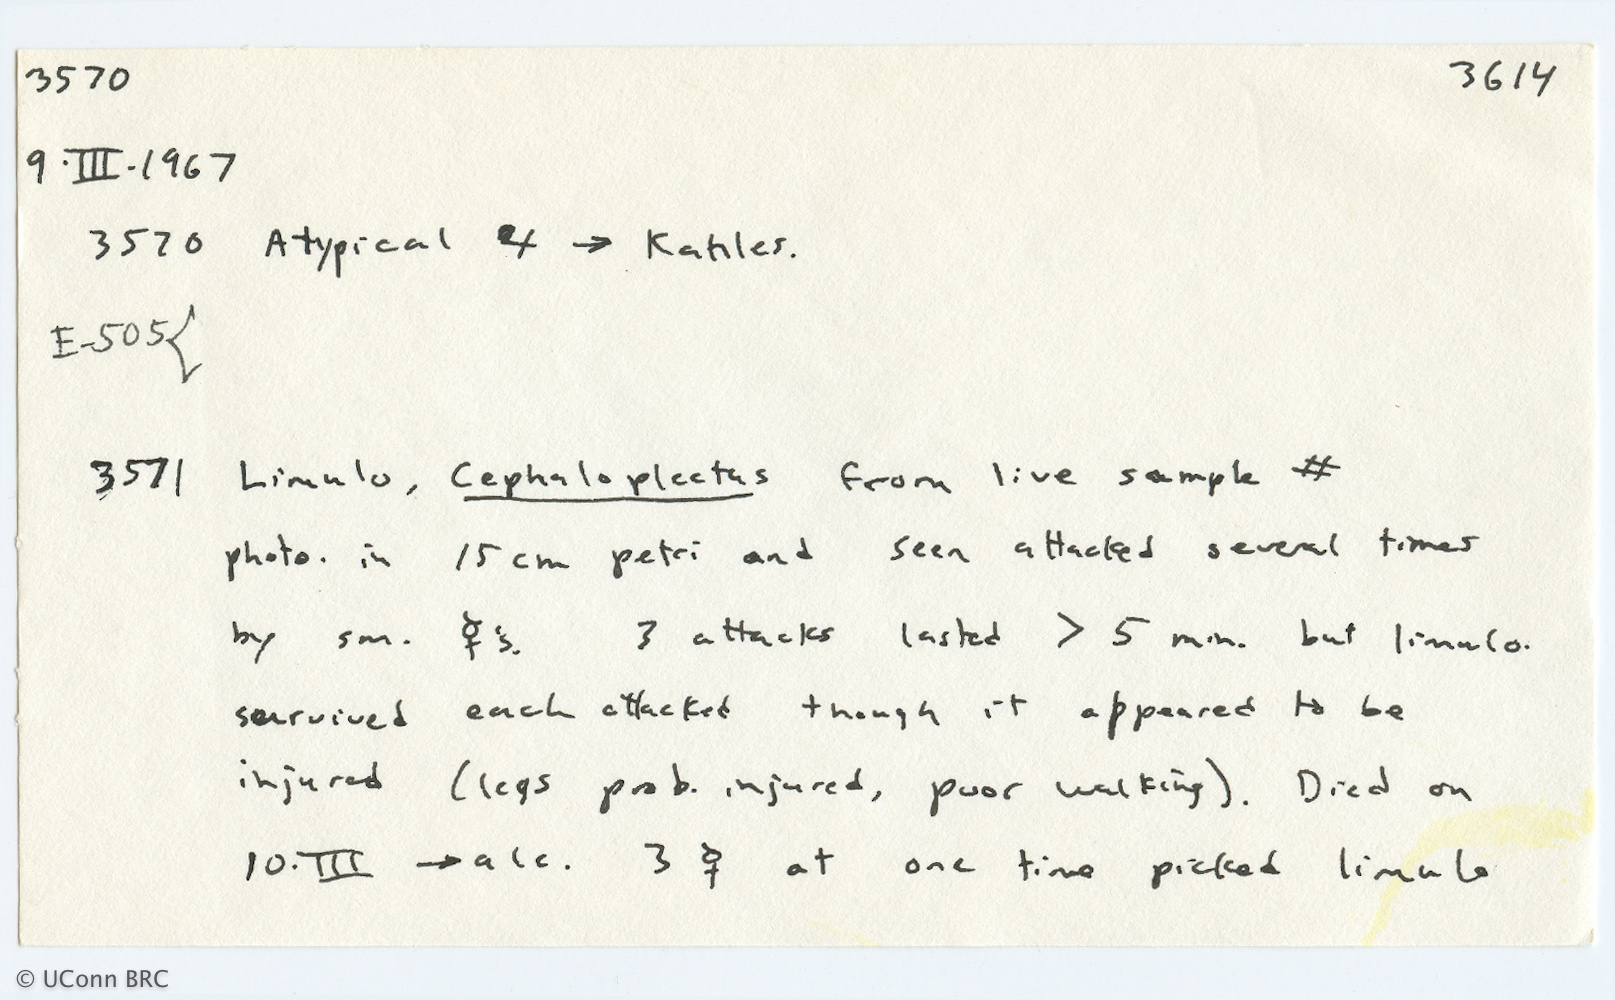 3570 3614
9·III·1967
3570 Atypical → Kahles.
E-505{
3571 Limulo, Cephaloplectus from live sample #
photo. in 15 cm petri and seen attacked several times
by sm. ☿s. 3 attacks lasted > 5 min. but limulo.
survived each attacked though it appeared to be
injured (legs prob. injured, poor walking). Died on
10·III → alc. 3 ☿ at one time picked limulo
© UConn BRC